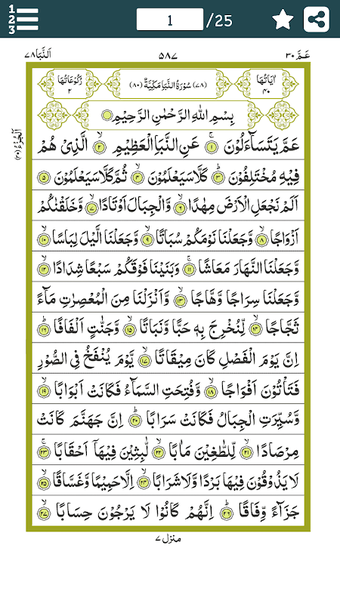 1
2
3
1 /25
النَّبَا ٧٨
٥٨٧
عَمَّ ٣٠
اٰیَاتُهَا ٤٠
(٧٨) سُوْرَةُ النَّبَاِ مَكِّیَّةٌ (٨٠)
رُكُوْعَاتُهَا ٢
بِسْمِ اللّٰهِ الرَّحْمٰنِ الرَّحِیْمِ
عَمَّ یَتَسَآءَلُوْنَ ۚ﴿١﴾ عَنِ النَّبَاِ الْعَظِیْمِ ۙ﴿٢﴾ الَّذِیْ هُمْ
فِیْهِ مُخْتَلِفُوْنَ ؕ﴿٣﴾ كَلَّا سَیَعْلَمُوْنَ ۙ﴿٤﴾ ثُمَّ كَلَّا سَیَعْلَمُوْنَ ﴿٥﴾
اَلَمْ نَجْعَلِ الْاَرْضَ مِهٰدًا ۙ﴿٦﴾ وَّالْجِبَالَ اَوْتَادًا ۪ۙ﴿٧﴾ وَّخَلَقْنٰكُمْ
اَزْوَاجًا ۙ﴿٨﴾ وَّجَعَلْنَا نَوْمَكُمْ سُبَاتًا ۙ﴿٩﴾ وَّجَعَلْنَا الَّیْلَ لِبَاسًا ۙ﴿١٠﴾
وَّجَعَلْنَا النَّهَارَ مَعَاشًا ۪﴿١١﴾ وَّبَنَیْنَا فَوْقَكُمْ سَبْعًا شِدَادًا ۙ﴿١٢﴾
وَّجَعَلْنَا سِرَاجًا وَّهَّاجًا ۪ۙ﴿١٣﴾ وَّاَنْزَلْنَا مِنَ الْمُعْصِرٰتِ مَآءً
ثَجَّاجًا ۙ﴿١٤﴾ لِّنُخْرِجَ بِهٖ حَبًّا وَّنَبَاتًا ۙ﴿١٥﴾ وَّجَنّٰتٍ اَلْفَافًا ؕ﴿١٦﴾
اِنَّ یَوْمَ الْفَصْلِ كَانَ مِیْقَاتًا ۙ﴿١٧﴾ یَّوْمَ یُنْفَخُ فِی الصُّوْرِ
فَتَاْتُوْنَ اَفْوَاجًا ۙ﴿١٨﴾ وَّفُتِحَتِ السَّمَآءُ فَكَانَتْ اَبْوَابًا ۙ﴿١٩﴾
وَّسُیِّرَتِ الْجِبَالُ فَكَانَتْ سَرَابًا ؕ﴿٢٠﴾ اِنَّ جَهَنَّمَ كَانَتْ
مِرْصَادًا ۪ۙ﴿٢١﴾ لِّلطّٰغِیْنَ مَاٰبًا ۙ﴿٢٢﴾ لّٰبِثِیْنَ فِیْهَاۤ اَحْقَابًا ۚ﴿٢٣﴾
لَا یَذُوْقُوْنَ فِیْهَا بَرْدًا وَّلَا شَرَابًا ۙ﴿٢٤﴾ اِلَّا حَمِیْمًا وَّغَسَّاقًا ۙ﴿٢٥﴾
جَزَآءً وِّفَاقًا ؕ﴿٢٦﴾ اِنَّهُمْ كَانُوْا لَا یَرْجُوْنَ حِسَابًا ۙ﴿٢٧﴾
منزل ٧